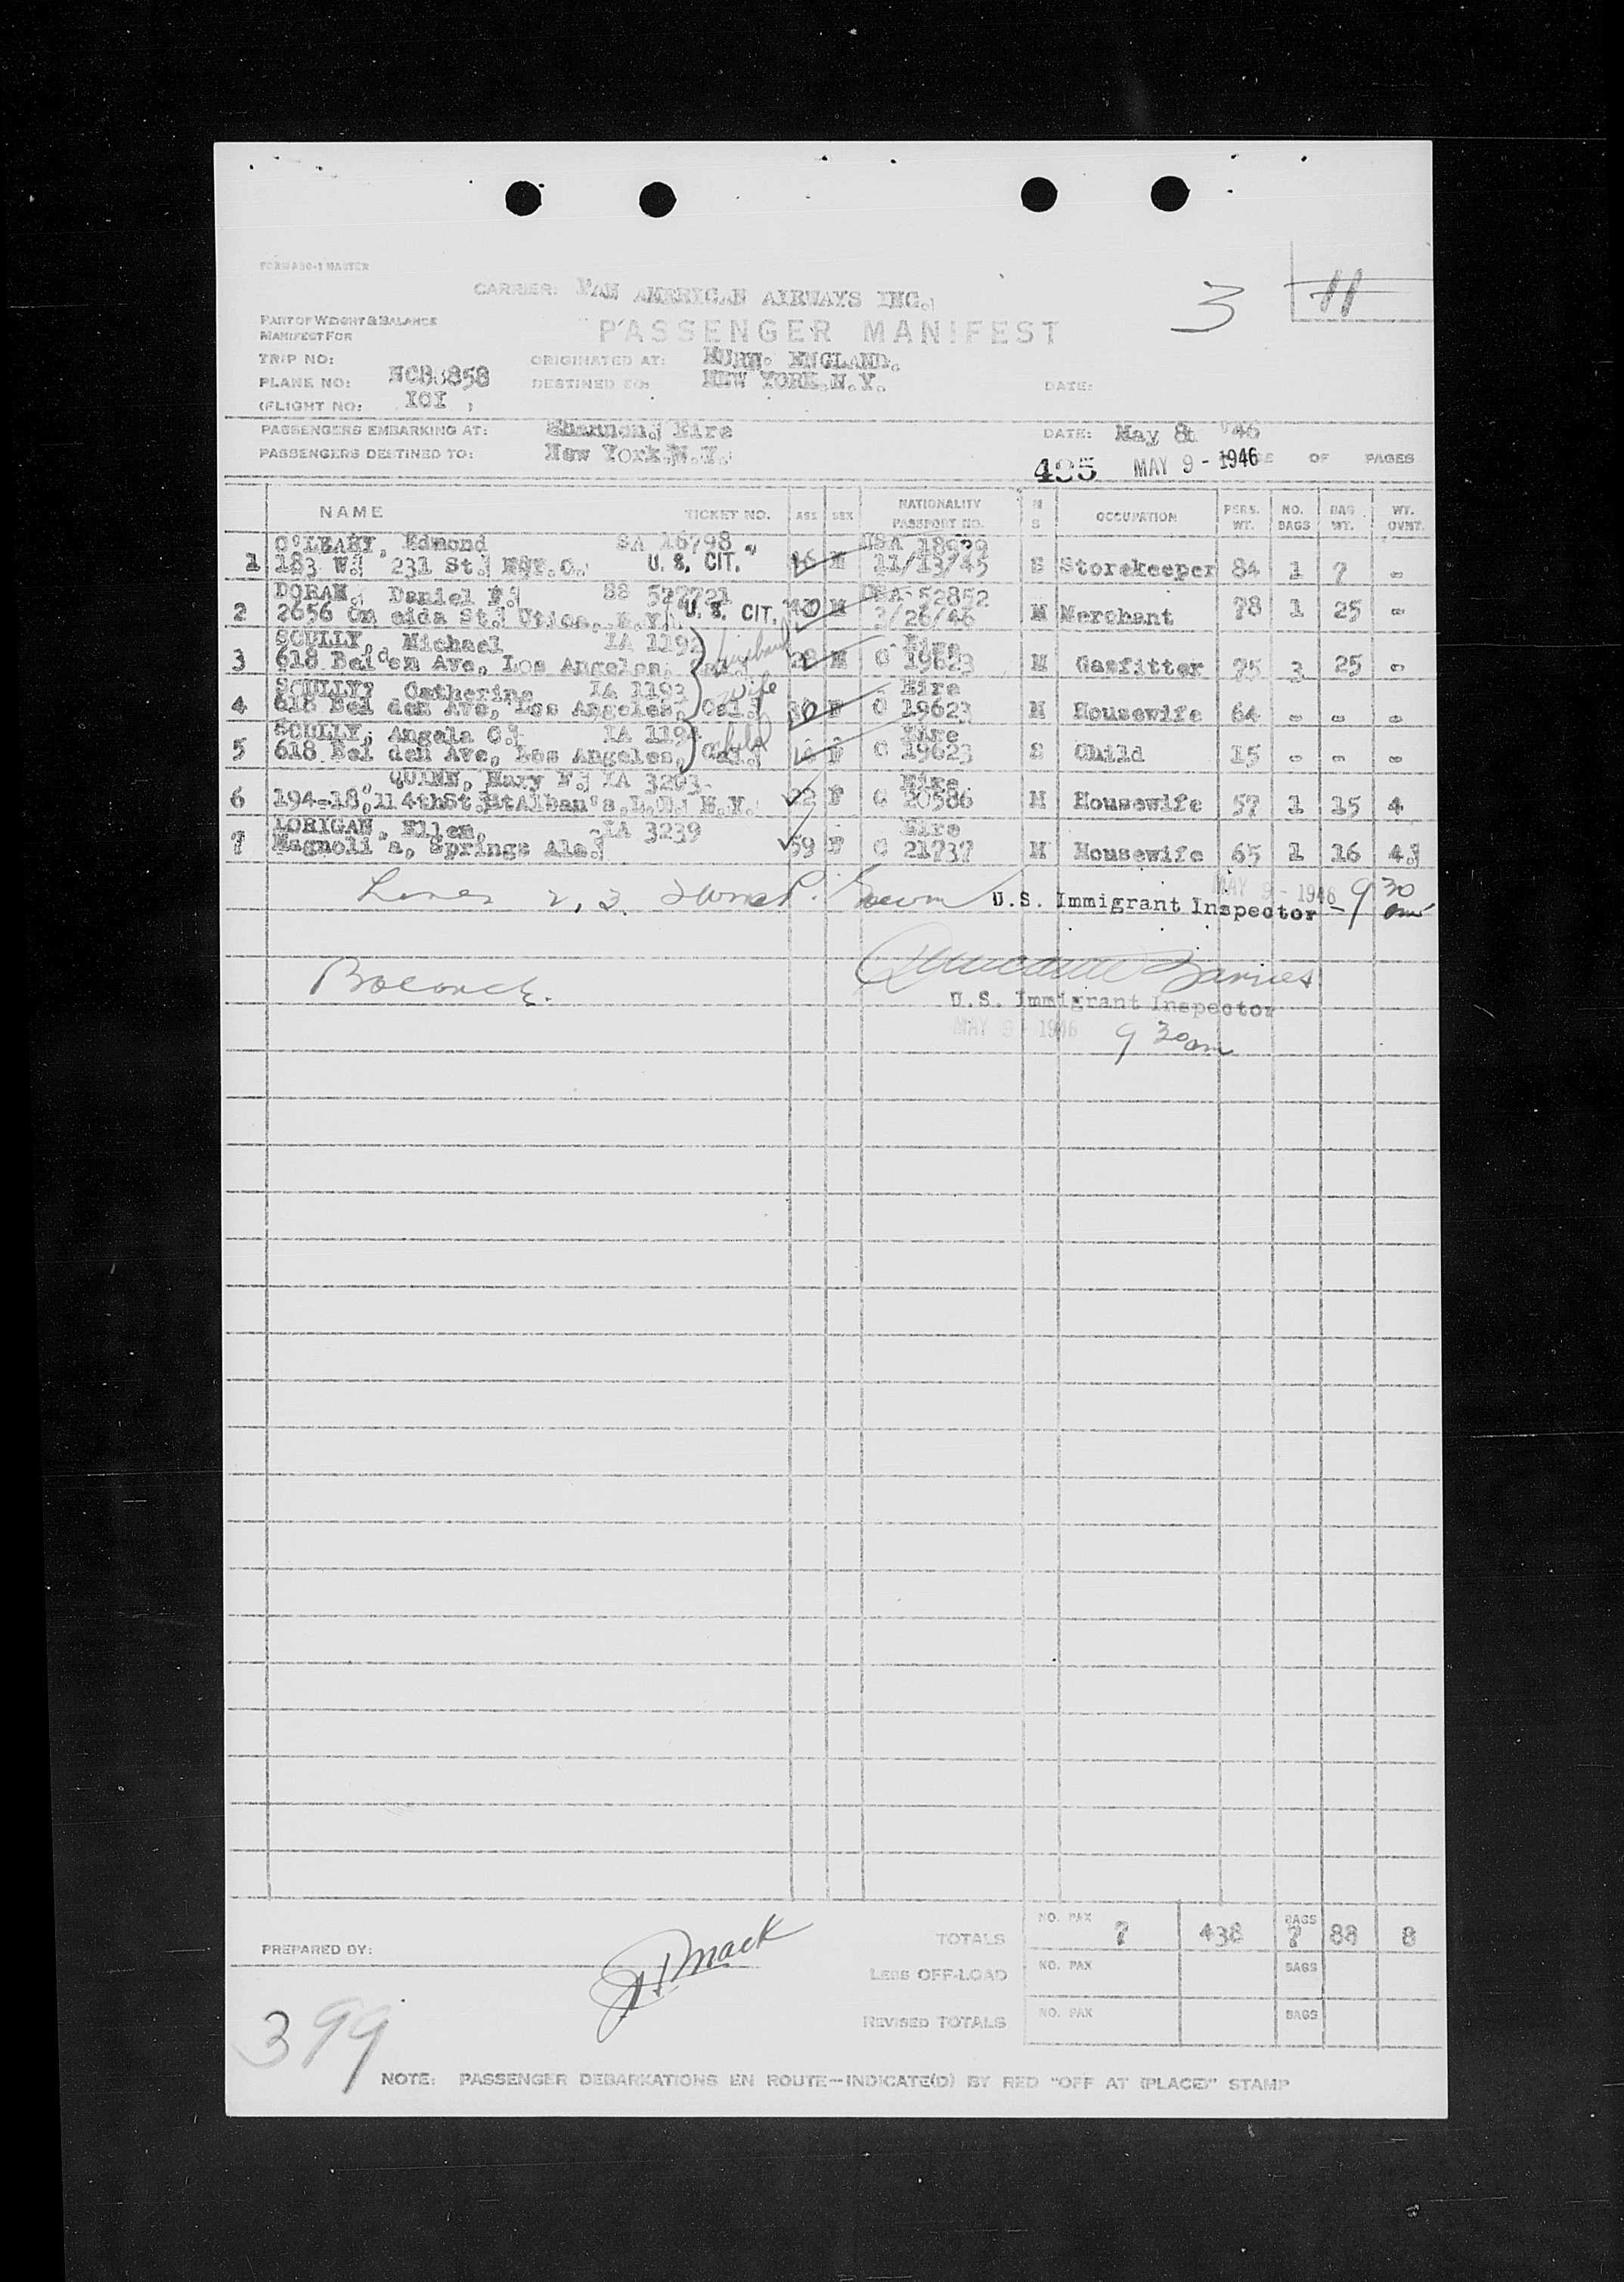 FORM A80-1 MASTER
CARRIER: PAN AMERICAN AIRWAYS INC.
3 11
PART OF WEIGHT & BALANCE
MANIFEST FOR
PASSENGER MANIFEST
TRIP NO:
ORIGINATED AT: HURN. ENGLAND.
PLANE NO: NC88858
DESTINED TO: NEW YORK.N.Y.
DATE:
(FLIGHT NO: IOI )
PASSENGERS EMBARKING AT: Shannon. Eire
DATE: May 8t '46
PASSENGERS DESTINED TO: New York.N.Y.
495 MAY 9 - 1946 OF PAGES
NAME TICKET NO. AGE SEX NATIONALITY PASSPORT NO. M S OCCUPATION PERS. WT. NO. BAGS BAG WT. WT. OVWT.
O'LEARY, Edmond SA 16798 USA 18979
1 183 W. 231 St. N.Y.C. U. S. CIT. 46 M 11/13/45 S Storekeeper 84 1 7 -
DORAN, Daniel F. SS 527721 USA 52852
2 2656 On eida St. Utica, N.Y. U. S. CIT. M 2/26/46 M Merchant 78 1 25 -
SCULLY, Michael IA 1192 husband Eire
3 618 Belden Ave, Los Angeles, Cal. 28 M C 19623 M Gasfitter 75 3 25 -
SCULLY, Catherine IA 1193 wife Eire
4 618 Bel den Ave, Los Angeles, Cal. 30 F C 19623 M Housewife 64 - - -
SCULLY, Angela C. IA 1194 child Eire
5 618 Bel den Ave, Los Angeles, Cal. F C 19623 S Child 15 - - -
QUINN, Mary F. IA 3203 Eire
6 194-18, 114thSt StAlban's.L.I. N.Y. 22 F C 20586 M Housewife 57 1 15 4
LORIGAN, Ellen, IA 3239 Eire
7 Magnoli a, Springs Ala. 59 F C 21737 M Housewife 65 1 16 4.
Lines 2, 3, MAY 9 - 1946 9 30 am
U.S. Immigrant Inspector
Barnes
U.S. Immigrant Inspector
MAY 9 - 1946 9 30 am
TOTALS NO. PAX 7 438 BAGS 7 88 8
PREPARED BY: Mack
LESS OFF-LOAD NO. PAX BAGS
REVISED TOTALS NO. PAX BAGS
399
NOTE: PASSENGER DEBARKATIONS EN ROUTE—INDICATE(D) BY RED "OFF AT (PLACE)" STAMP